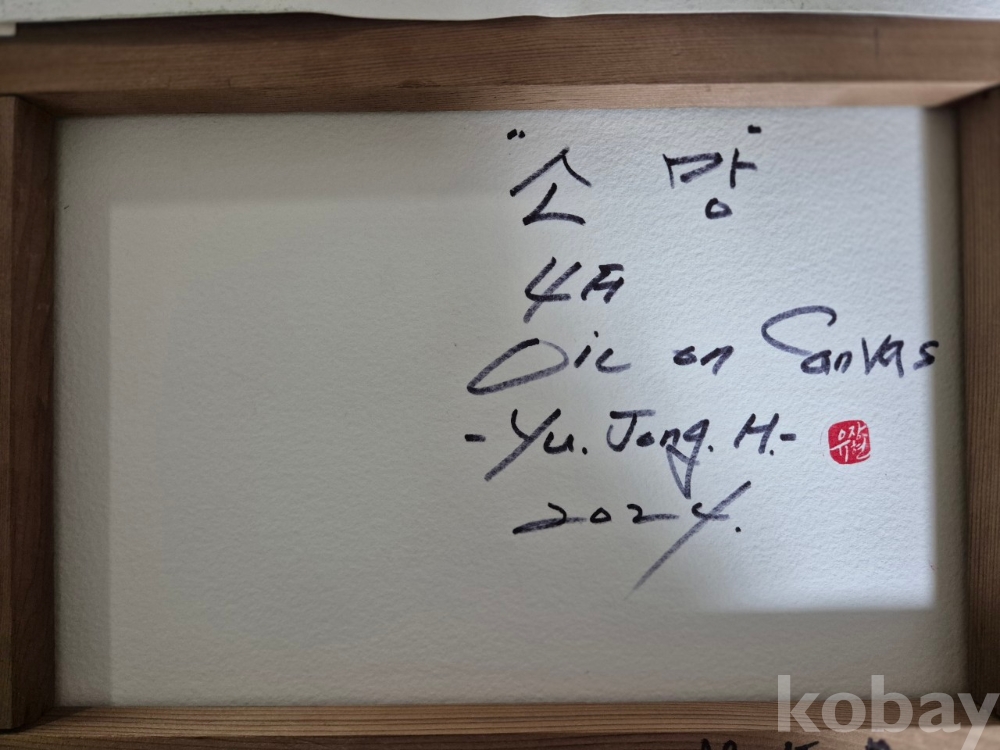 "소 망"
4F
Oil on Canvas
-Yu. Jong. H.-
유장현
2024.
kobay